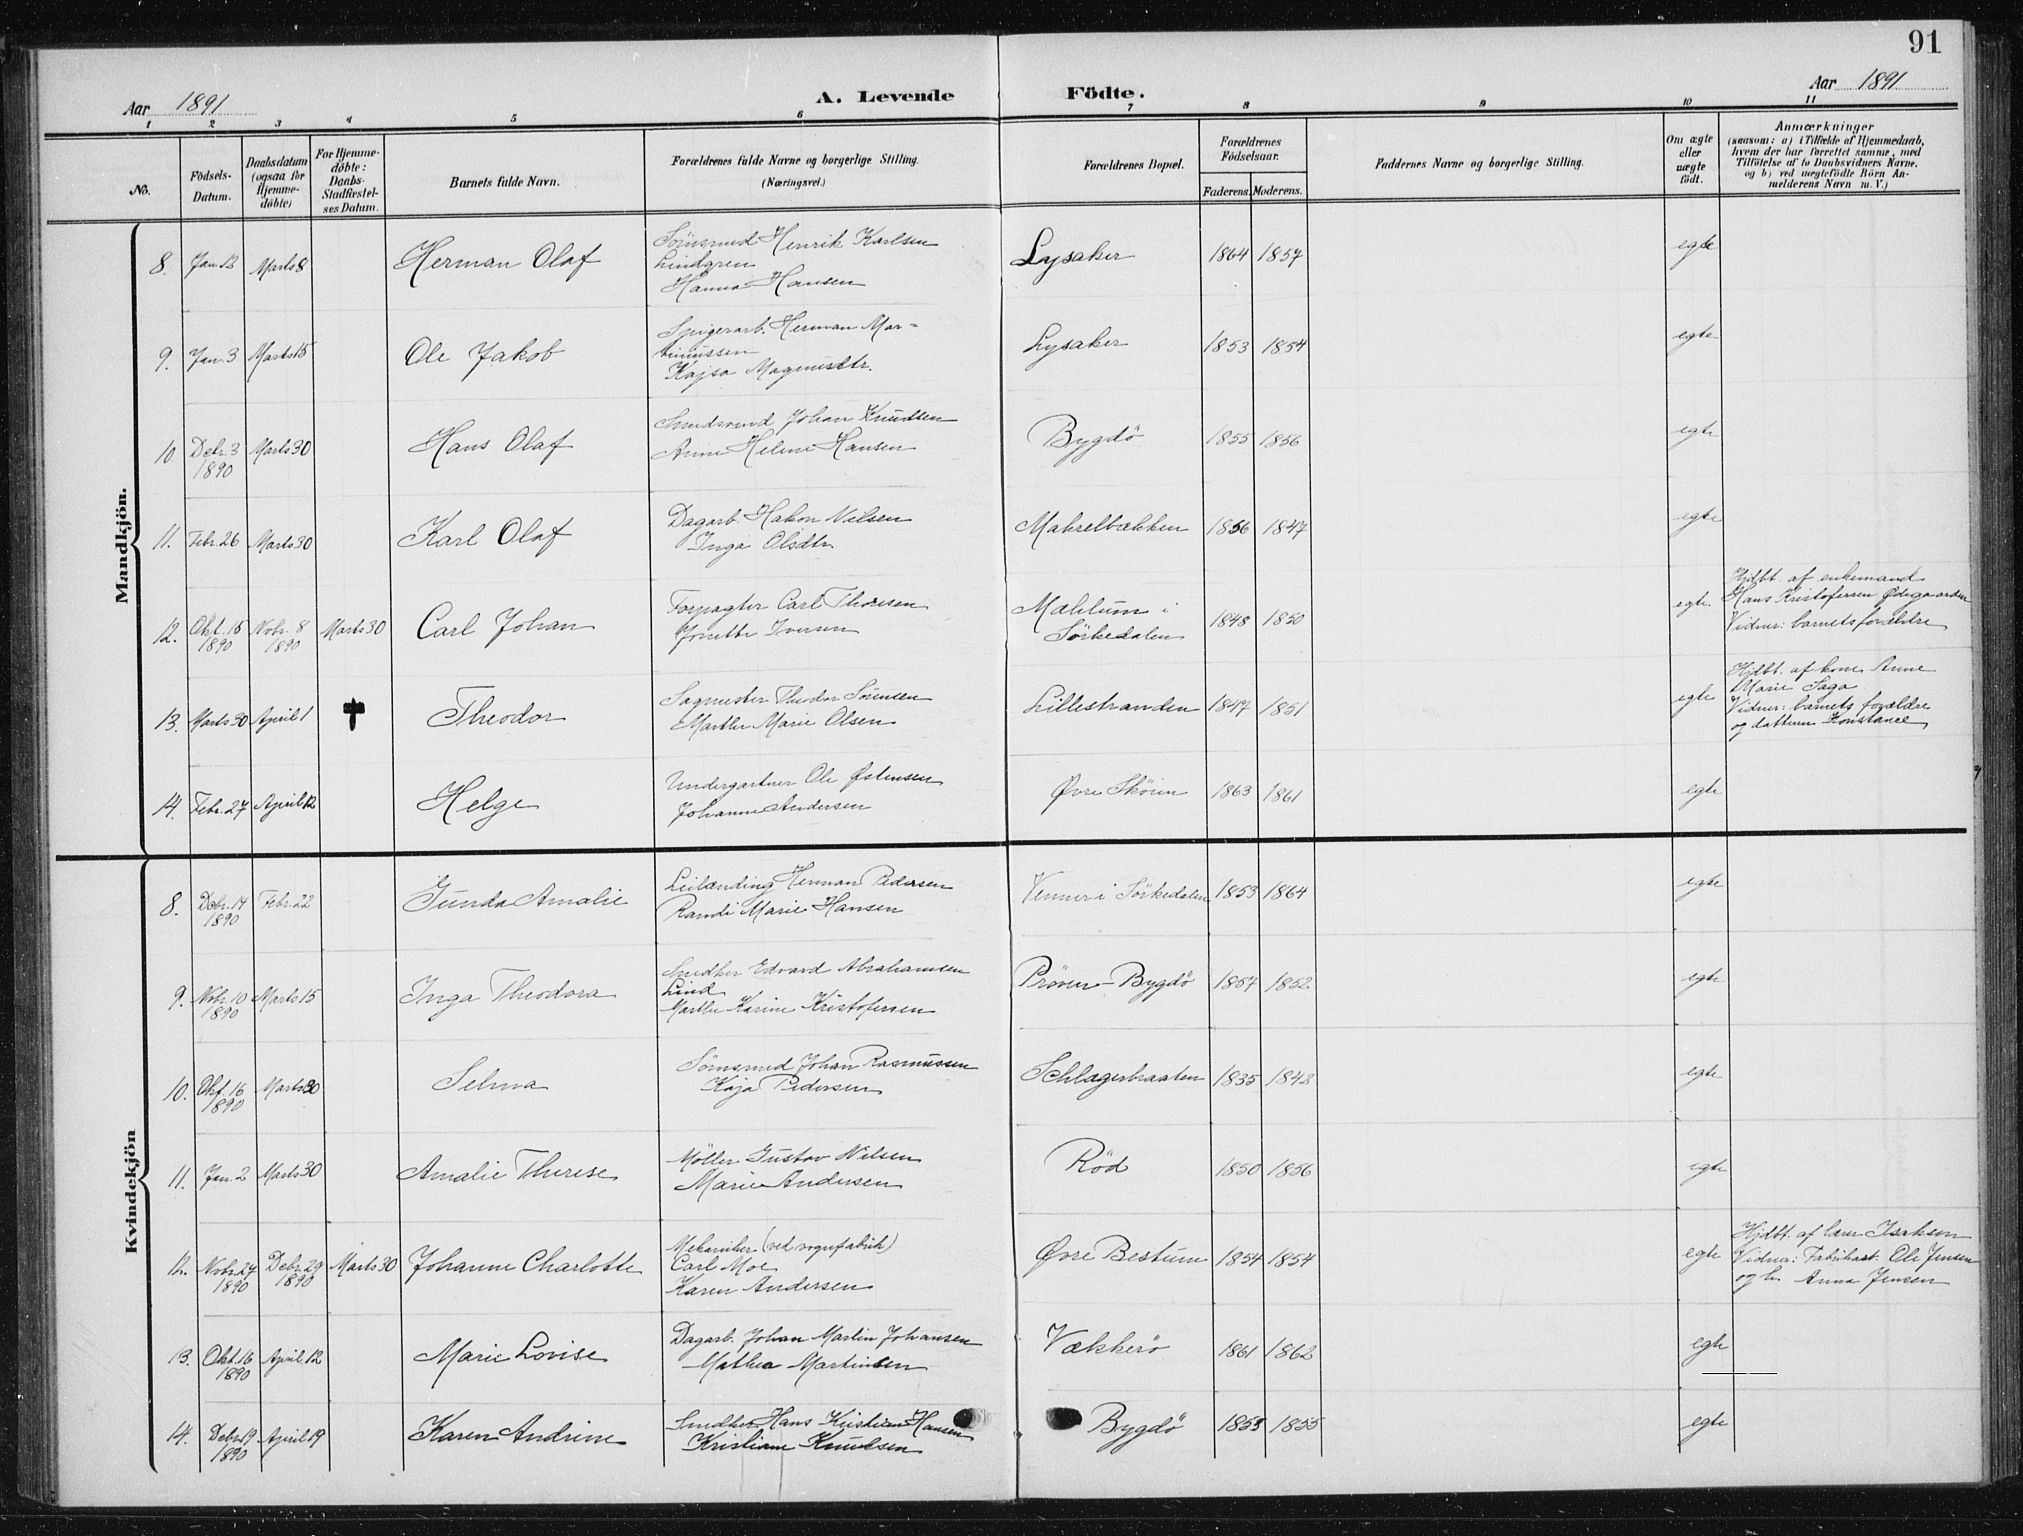 91
Aar 1891
A. Levende Födte.
Aar 1891
1 2 3 4 5 6 7 8 9 10 11
No.
Födsels-
Datum.
Daabsdatum
(ogsaa for
Hjemme-
döbte)
For Hjemme-
döbte:
Daabs-
Stadfæstel-
ses Datum.
Barnets fulde Navn.
Forældrenes fulde Navne og borgerlige Stilling.
(Næringsvei.)
Forældrenes Bopæl.
Forældrenes
Födselsaar.
Faderens. Moderens.
Faddernes Navne og borgerlige Stilling.
Om ægte
eller
uægte
födt.
Anmærkninger
(saasom: a) i Tilfælde af Hjemmedaab,
hvem der har forrettet samme, med
Tilföielse af to Daabsvidners Navne.
og b) ved uægtefödte Börn An-
melderens Navn m. V.)
Mandkjön.
8. Jan 13 Marts 8 Herman Olaf Henrik Karlsen Lysaker 1864 1857 egte
Lindgren
Hanna Hansen
9. Jan. 3 Marts 15 Ole Jakob Spigerarb. Herman Mar- Lysaker 1853 1854 egte
tinussen
Kajsa Magnusdtr.
10 Debr. 3 Marts 30 Hans Olaf Johan Knudsen Bygdö 1855 1856 egte
1890
Anne Helene Hansen
11. Febr. 26 Marts 30 Karl Olaf Dagarb. Hakon Nilsen Makrelbækken 1856 1847 egte
Inga Olsdtr.
12. Okt. 15 Nobr. 8 Marts 30 Carl Johan Forpagter Carl Thoresen i 1848 1850 egte. Hjdbt. af enkemand
1890 1890
Jonette Iversen Sörkedalen Hans Kristofersen Ødegaarden
Vidner: barnets forældre
13. Marts 30 April 1 † Theodor Sagmester Theodor Sörensen Lillestranden 1847 1851 egte Hjdbt. af kone Anne
Marthe Marie Olsen Marie Saga
Vidner: barnets forældre
og datteren Konstance
14. Febr. 27 April 12 Helge Undergartner Ole Østensen Øvre Skøien 1863 1861 egte
Johanne Andersen
Kvindekjön
8. Debr. 14 Febr. 22 Gunda Amalie Leilænding Herman Pedersen Venner i Sörkedalen 1853 1864 egte
1890
Randi Marie Hansen
9. Nobr. 10 Marts 15 Inga Theodora Snedker Edvard Abrahamsen Prøven - Bygdö 1857 1852 egte
1890
Lind
Marthe Karine Kristofersen
10. Okt. 16 Marts 30 Selma Johan Rasmussen Schlagerbraaten 1835 1843 egte
1890
Kaja Pedersen
11. Jan 2 Marts 30 Amalie Therese Møller Gustav Nilsen Röd 1850 1856 egte
Marie Andersen
12. Nobr. 27 Debr. 29 Marts 30 Johanne Charlotte Mekaniker (ved vognfabrik) Øvre Bestum 1854 1854 egte Hjdbt. af lærer Isaksen
1890 1890
Carl Moe Vidner: Fabrikast. Ole Jensen
Karen Andersen og h. Anna Jensen
13. Okt. 16 April 12 Marie Lovise Dagarb. Johan Martin Johansen Vækkerö 1861 1862 egte
1890
Mathea Martinsen
14. Debr. 19 April 19 Karen Andrine Snedker Hans Kristian Hansen Bygdö 1853 1855 egte
1890
Kristiane Knudsen